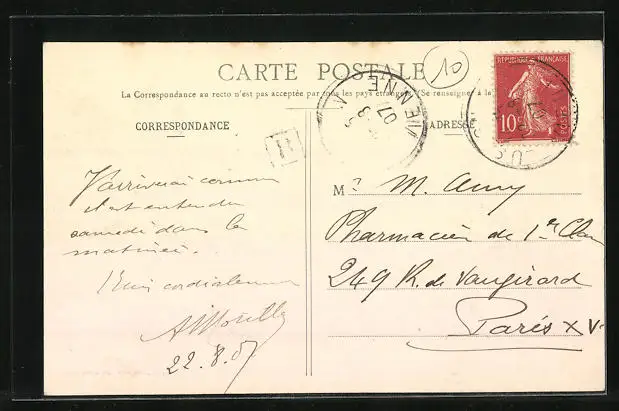 CARTE POSTALE
10
La Correspondance au recto n'est pas acceptée par tous les pays étrangers (Se renseigner à la
CORRESPONDANCE
ADRESSE
REPUBLIQUE FRANÇAISE
10
POSTES
VIENNE
07
J'arriverai comme
il est entendu
samedi dans la
matinée.
Bien cordialement
22.8.07
M. M. Amy
Pharmacien de 1re Classe
249 R. de Vaugirard
Paris XV